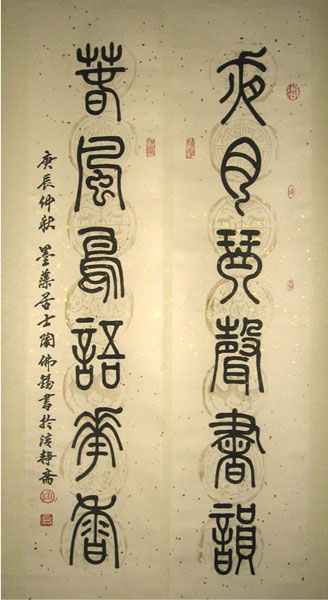 夜月琴聲書韻
春風鳥語花香
庚辰仲秋 墨藥居士陶佛錫書於清靜齋